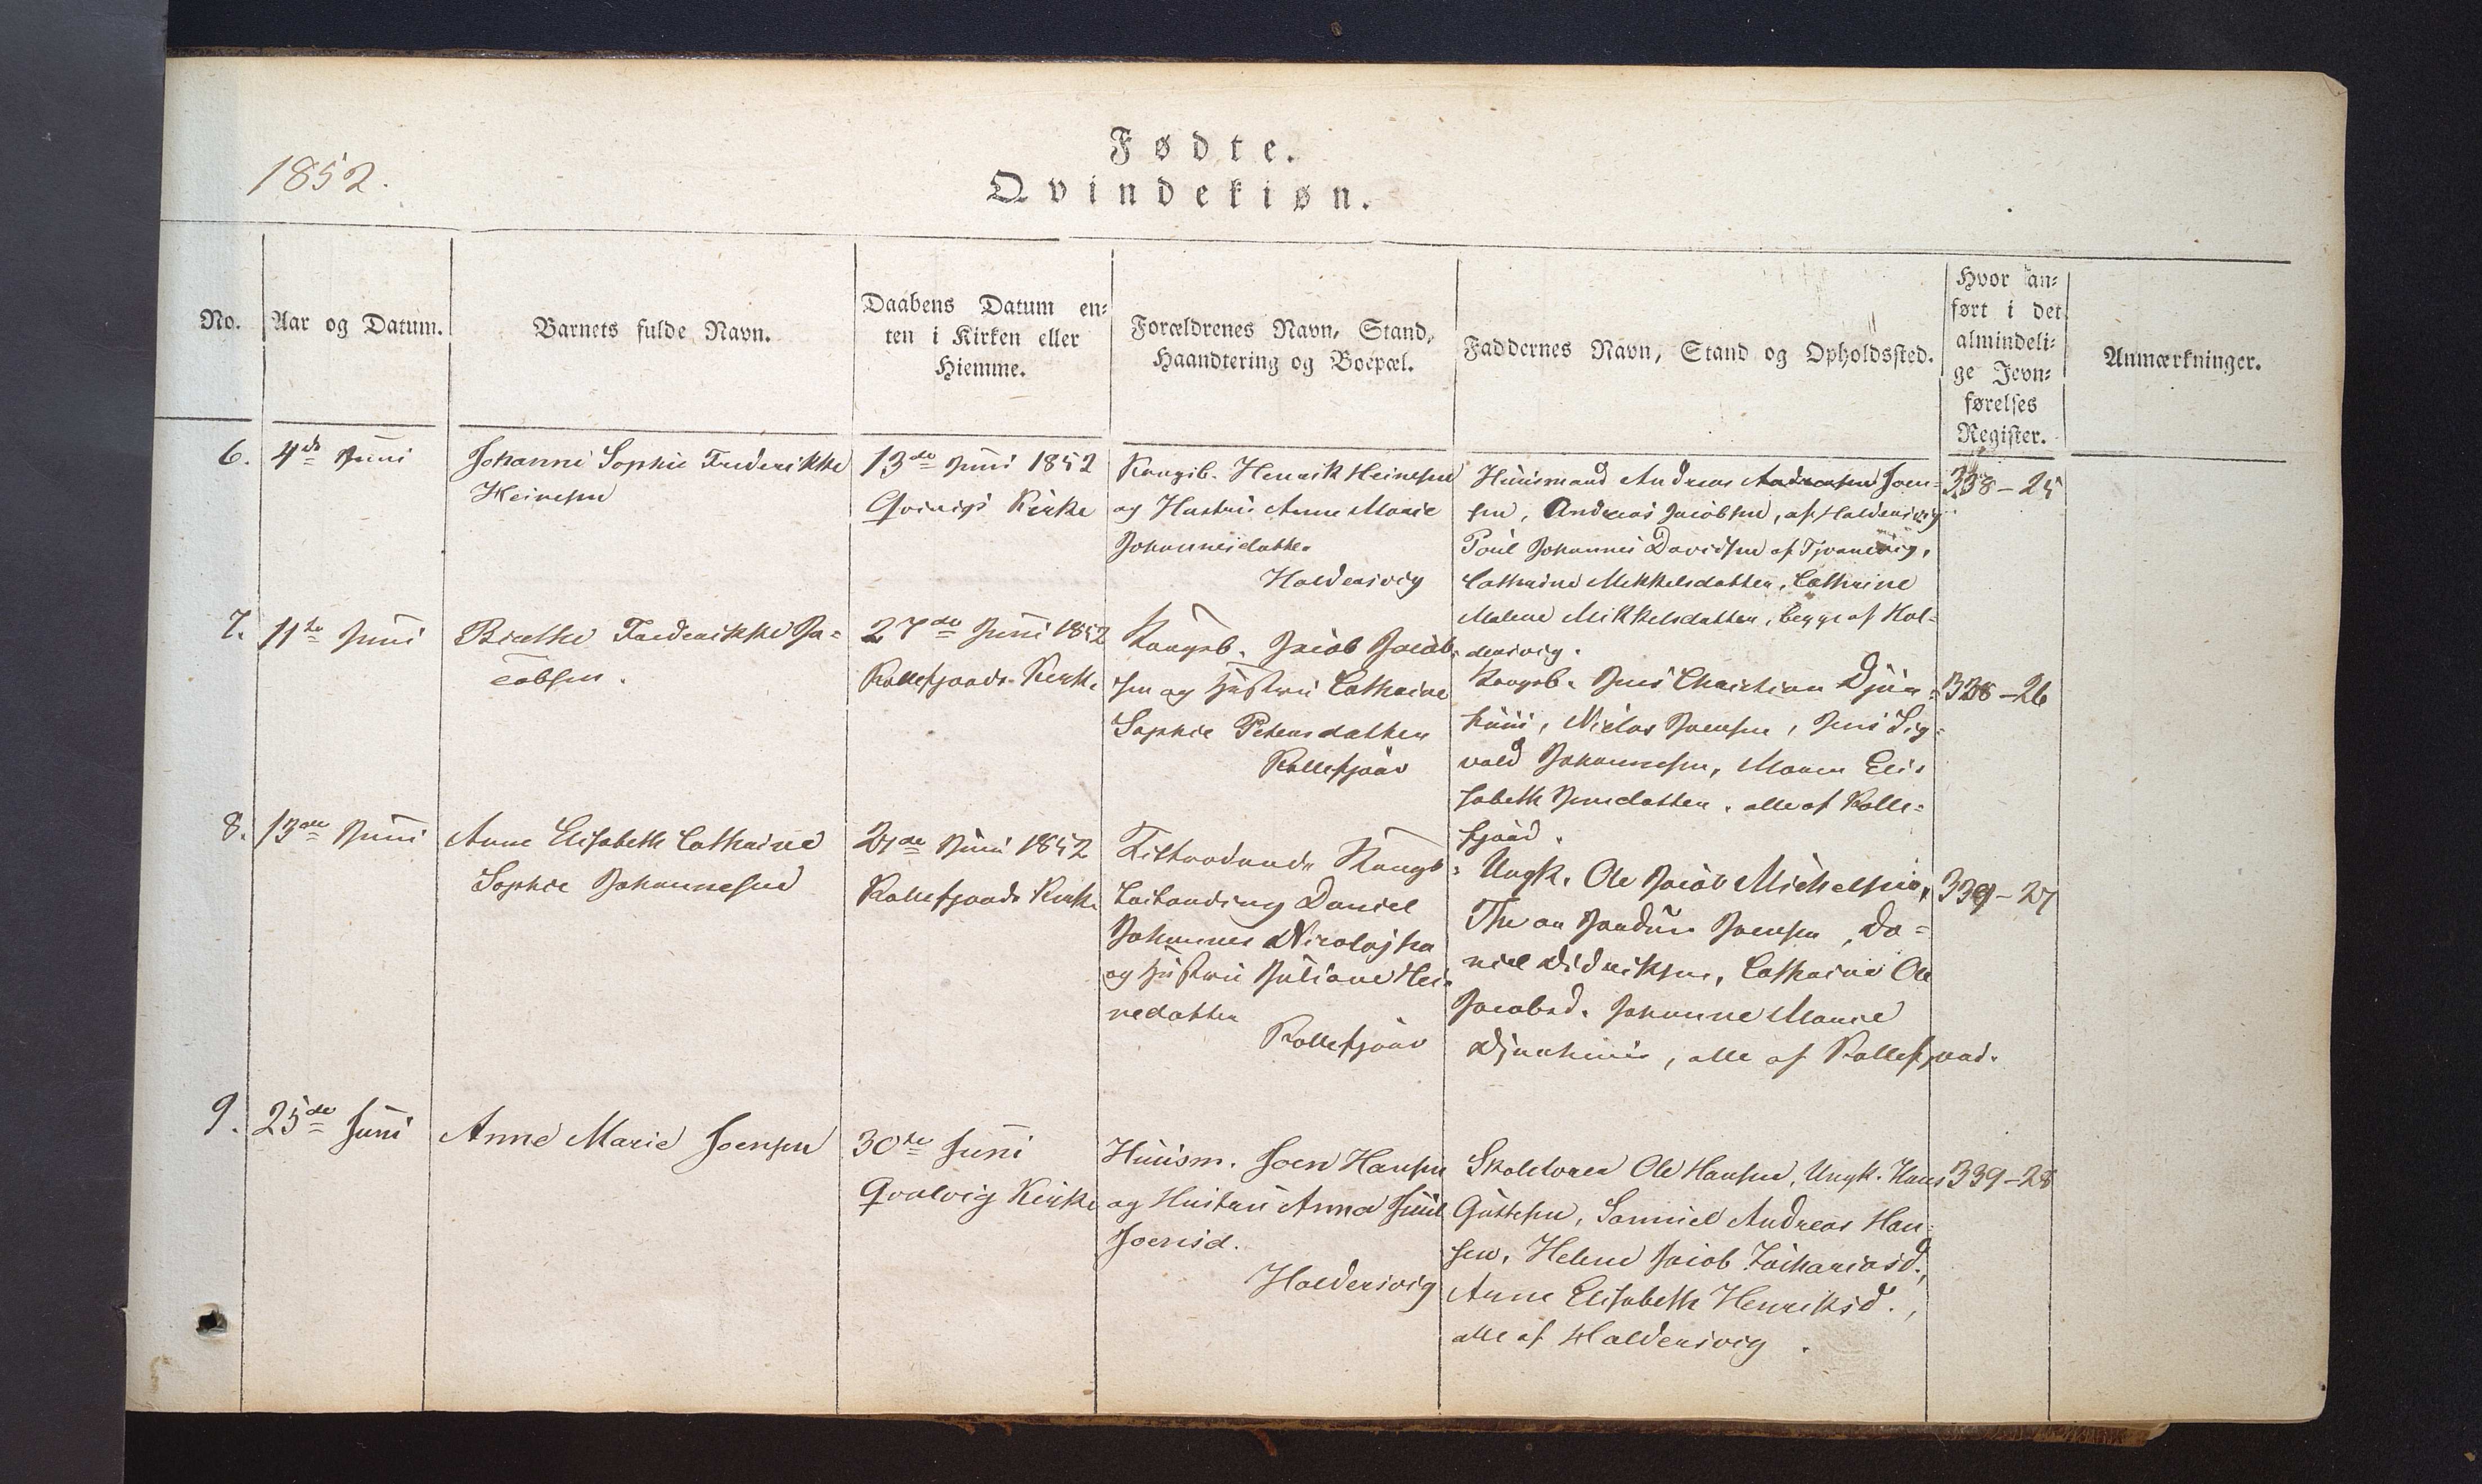 1852.
Fødte.
Qvindekiøn.
No.
Aar og Datum.
Barnets fulde Navn.
Daabens Datum en=
ten i Kirken eller
Hiemme.
Forældrenes Navn, Stand,
Haandtering og Boepæl.
Faddernes Navn, Stand og Opholdssted.
Hvor an=
ført i det
almindeli=
ge Jevn=
førelses
Register.
Anmærkninger.
6.
4de Juni
Johanne Sophie Frederikke
Heinesen
13de Juni 1852
Kirke
Kongsb. Henrik Heinesen
og Hustru Anne Marie
Johannesdatter
Haldersvig
Huusmand Andreas Andreasen Joen=
sen, Andreas Jacobsen, af Haldersvig
Poul Johannes Davidsen af Tjørnevig,
Cathrine Mikkelsdatter, Cathrine
Malene Mikkelsdatter, begge af Hal=
dersvig.
338-25
7.
11te Juni
Birthe Frederikke Ja=
cobsen.
27de Juni 1852
Kollefjords Kirke
Kongsb. Jacob Jacob=
sen og Hustru Cathrine
Sophie Petersdatter
Kollefjord
Kongsb. Jens Christian Djúr=
huus, Niclas Joensen, Jens Sig=
vald Johannesen, Maren Elis
sabeth Jensdatter, alle af Kolle=
fjord.
338-26
8.
13de Juni
Anne Elisabeth Cathrine
Sophie Johannesen
27de Juni 1852
Kollefjords Kirke
Tiltrædende Kongsb=
Daniel
Johannes Nicolajsen
og Hustru Juliane Hei=
nedatter
Kollefjord
Ungk. Ole Jacob Michelsen,
Joensen, Da=
niel Didriksen, Cathrine Ole
Jacobsd. Johanne Marie
Djurhuus, alle af Kollefjord.
339-27
9.
25de Juni
Anne Marie Joensen
30te Juni
Qvalvig Kirke
Huusm. Joen Hansen
og Hustru Anna Juul
Joensd.
Haldersvig
Skolelærer Ole Hansen, Ungk. Hans
Guttesen, Samuel Andreas Han=
sen, Helene Jacob Zachariasd.,
Anne Elisabeth Henriksd.,
alle af Haldersvig.
339-28